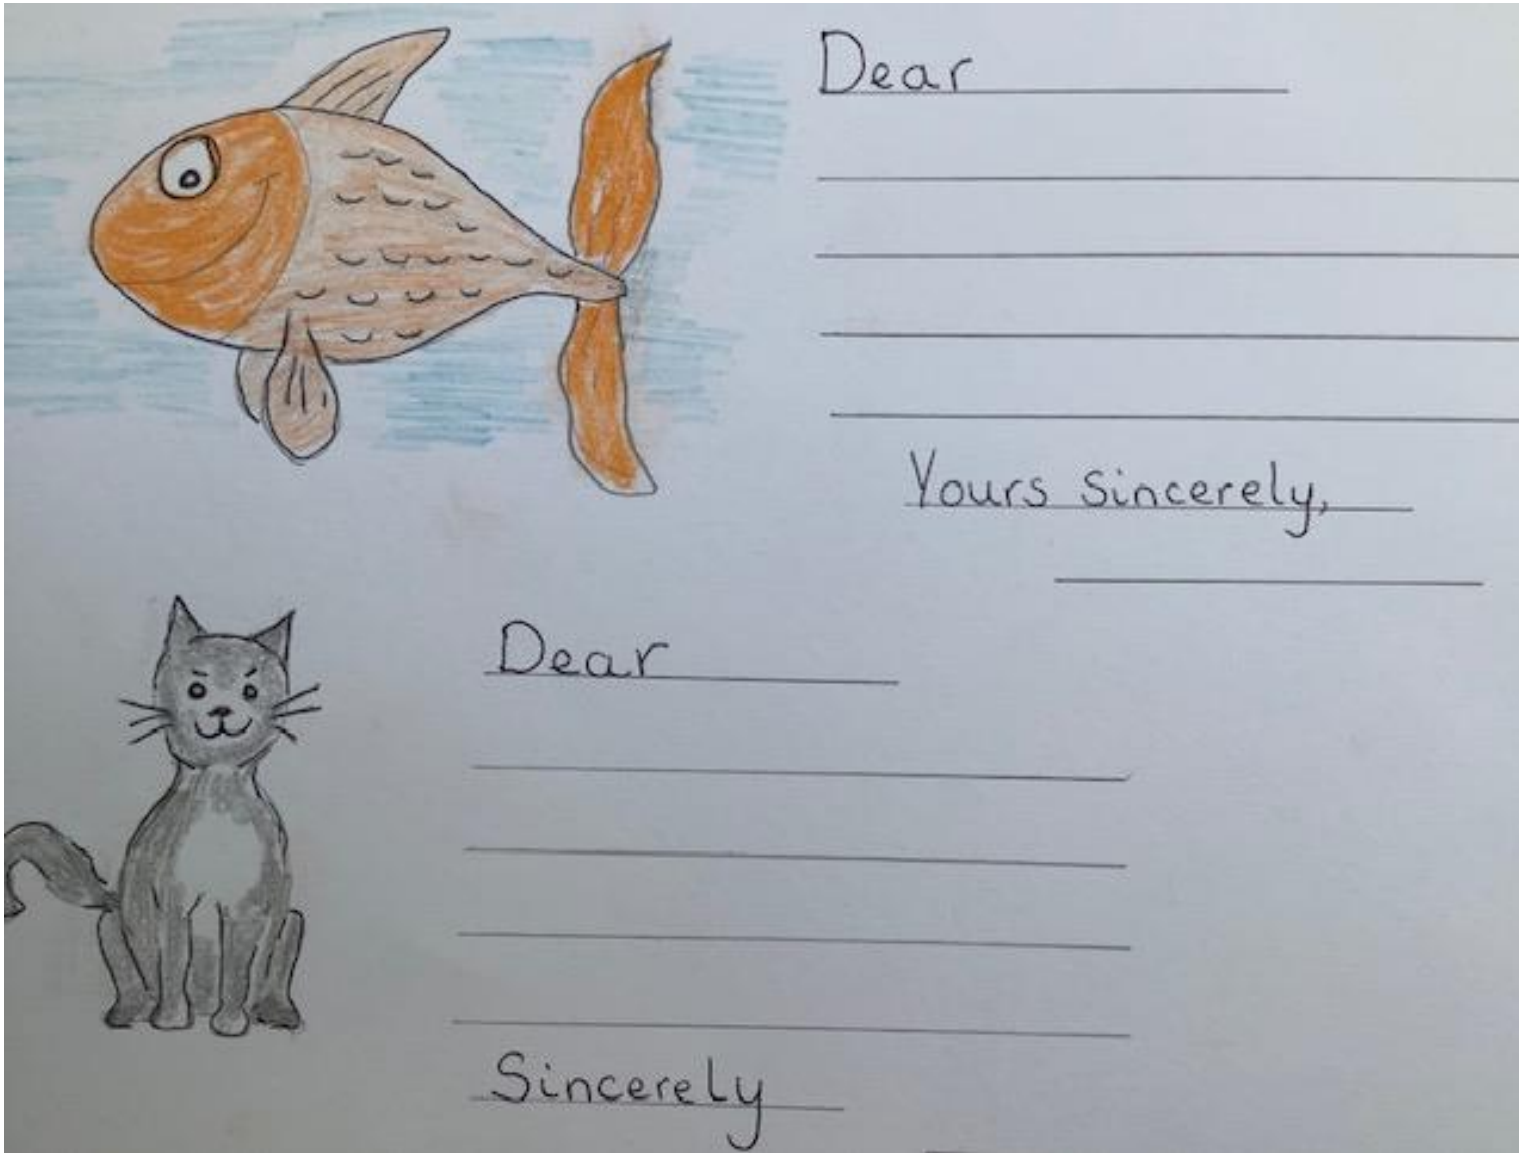 Dear
Yours sincerely,
Dear
Sincerely